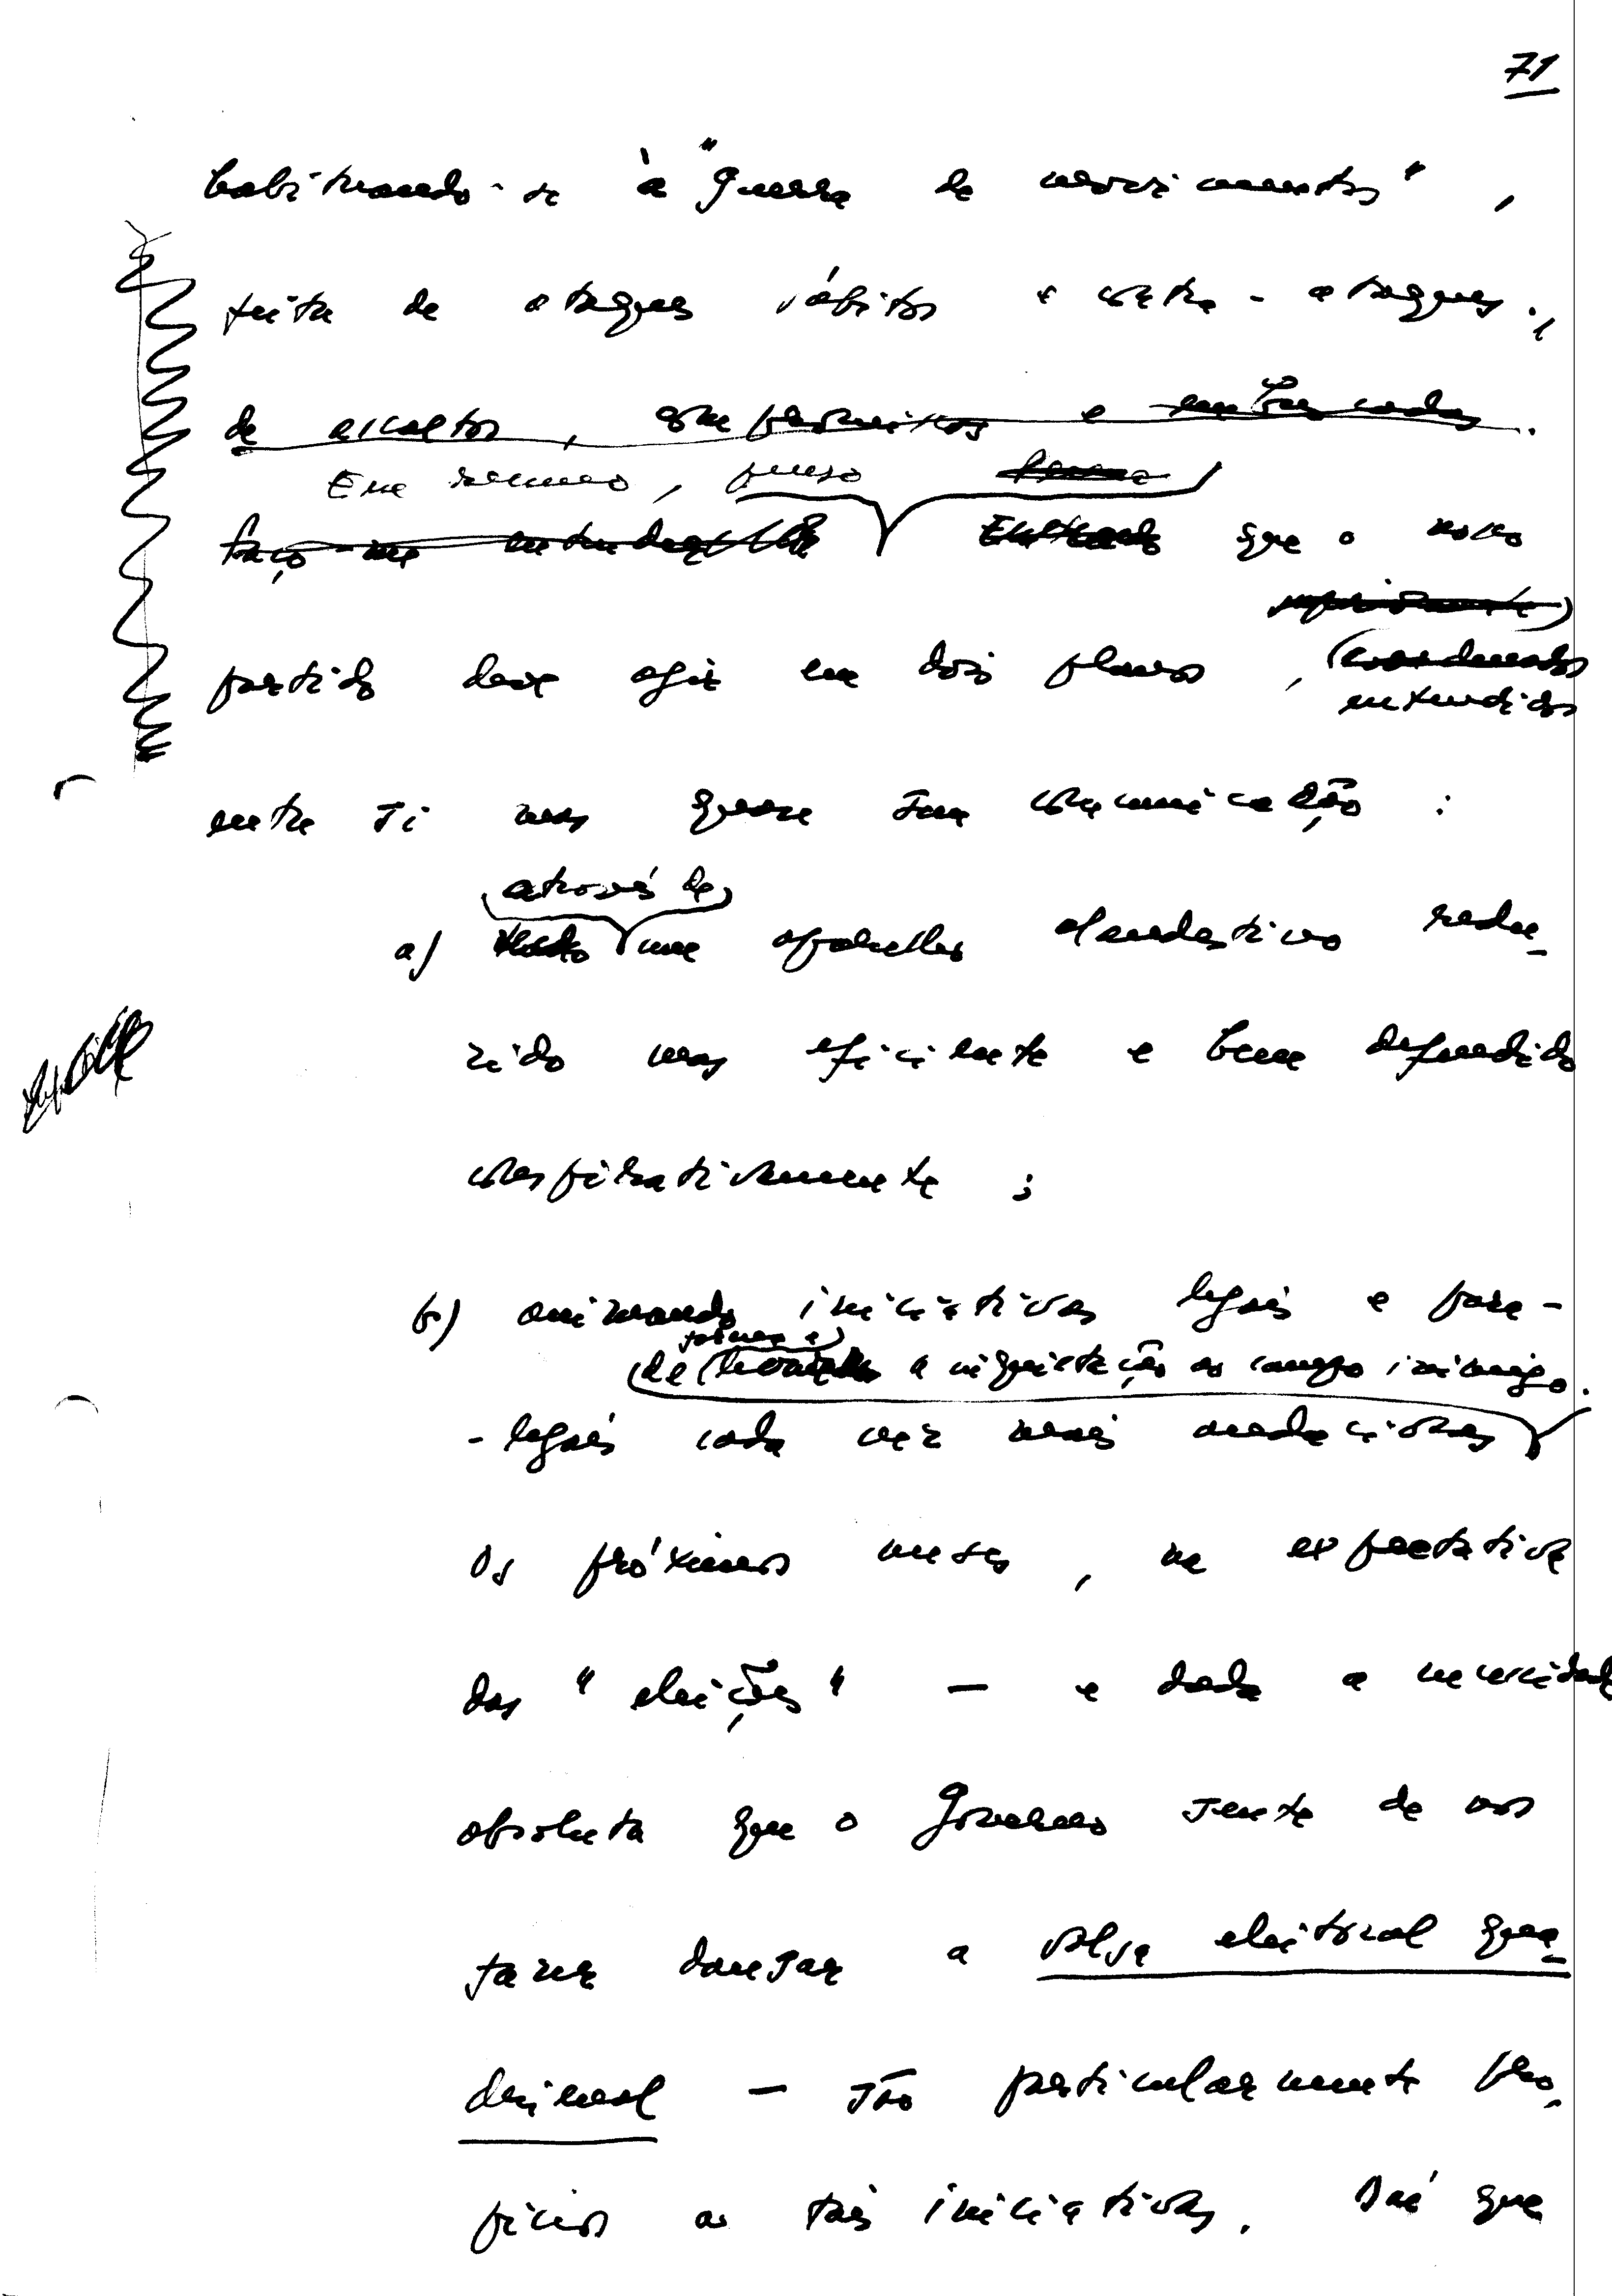 71
habituando-se à "guerra de movimentos",
feita de ataques súbitos e contra-ataques.,
de assaltos, e
Em resumo, penso
faço-me entender que o novo
partido deve agir em dois planos, coordenados
entendidos
entre si mas quase sem comunicação :
através de
a) um aparelho clandestino redu-
zido mas eficiente e bem defendido
conspirativamente ;
b) animando iniciativas legais e para-
de levar a inquietação ao campo inimigo.
-legais cada vez mais audaciosas
Os próximos meses, na expectativa
das "eleições" — e dada a necessidade
absoluta que o Governo sente de nos
fazer dançar a valsa eleitoral qua-
drienal — são particularmente pro-
pícios a tais iniciativas. Daí que